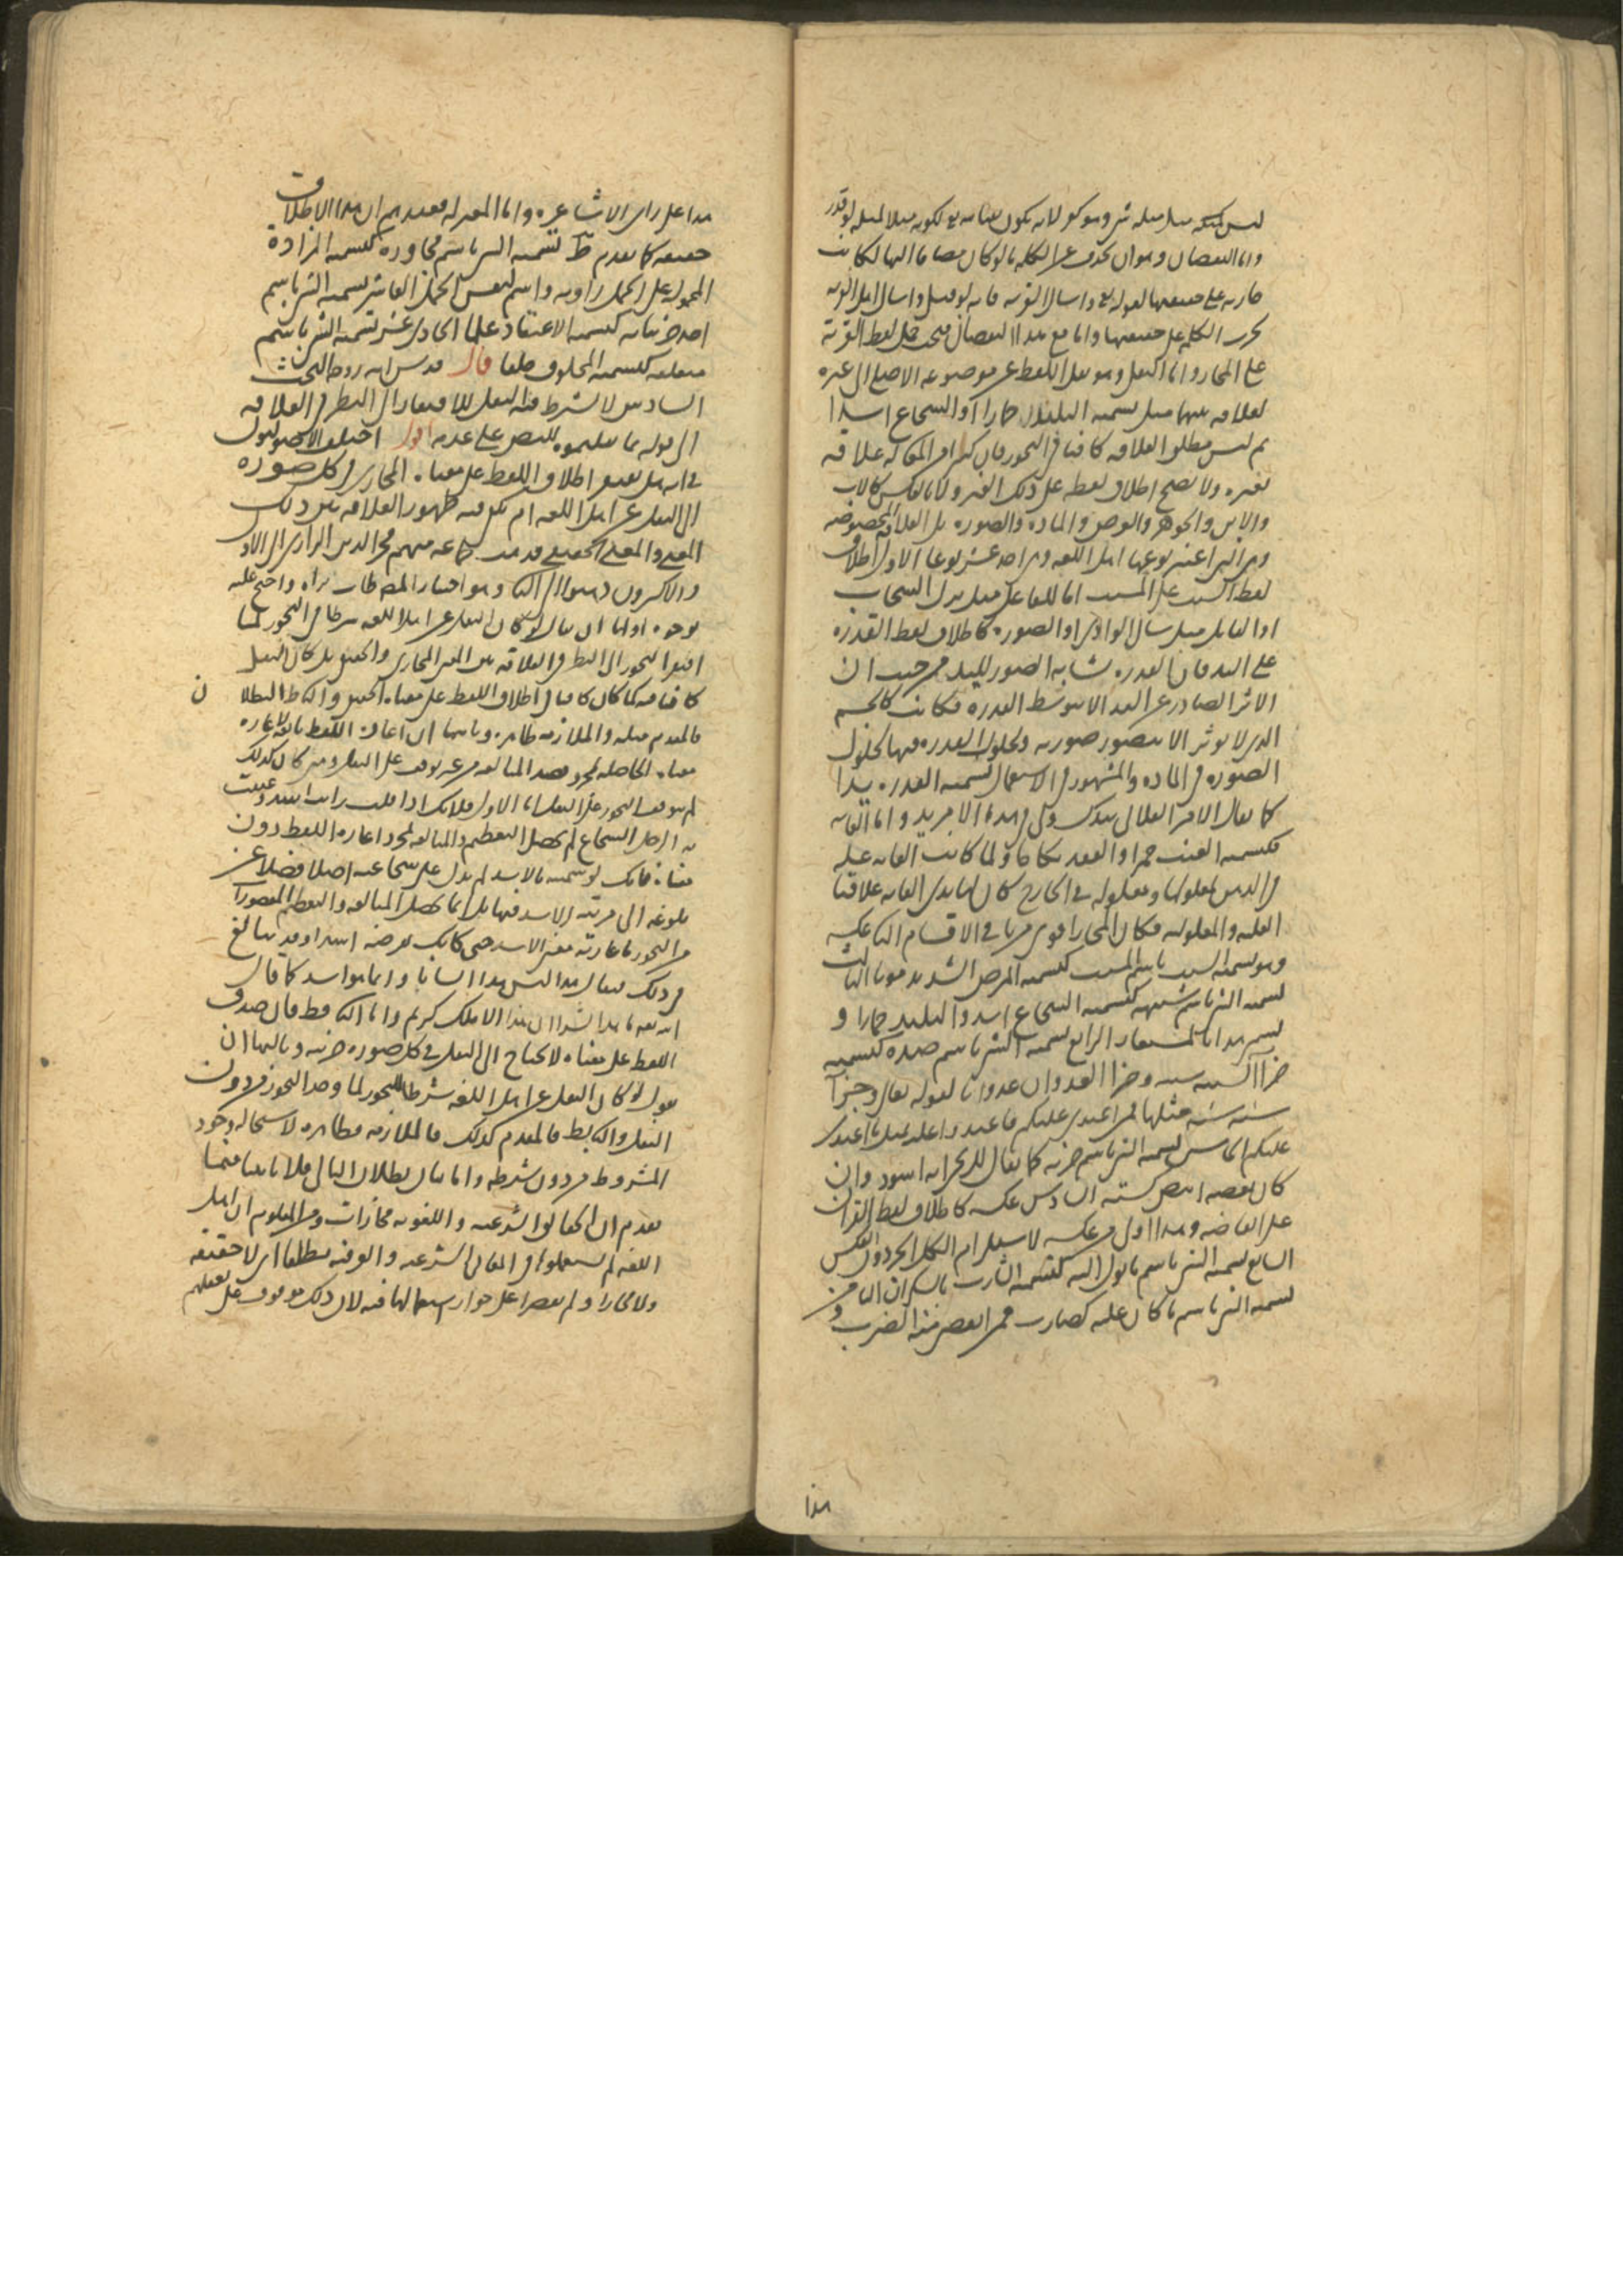 ليس كمثله مثل مثله شيء وهو كفر لانه يكون
واما النقصان وهو ان يحذف عن الكلمة ما لو كان مضافا اليها لكانت
جارية على حقيقتها لقوله تع واسال القرية فانه لو قيل واسال اهل القرية
لجرت الكلمة على حقيقتها واما مع هذا النقصان فيجب حمل لفظ القرية
على المجاز واما النقل وهو نقل اللفظ عن موضوعه الاصلي الى غيره
لعلاقة بينهما مثل تسمية البليد حمارا او الشجاع اسدا
ثم ليس مطلق العلاقة كافيا في التجوز فان كثيرا من له علاقة
بغيره ولا يصح اطلاق لفظه على ذلك الغير ولا بالعكس كالاب
والابن والجوهر والعرض والمادة والصورة بل العلاقة المخصوصة
وهي التي اعتبر نوعها اهل اللغة وهي احد عشر نوعا الاول اطلاق
لفظ السبب على المسبب اما الفاعل مثل نزل السحاب
او القابل مثل سال الوادي او الصورة كاطلاق لفظ القدرة
على اليد فان القدرة مشابه الصور لليد من حيث ان
الاثر الصادر عن اليد الا بتوسط القدرة فكانت كالجسم
الذي لا يوثر الا بتصور صورته ولحلول القدرة فيها كحلول
الصورة في المادة والمشهور في الاستعمال تسمية القدرة يدا
كما يقال الامر الفلاني بيدك واما الغاية
فكتسمية العنب خمرا والعقد نكاحا ولما كانت الغاية علة
في الذهن لمعلولها ومعلولة في الخارج كان لها بذي الغاية علاقتا
العلية والمعلولية فكان المجاز اقوى من باقي الاقسام الثاني عكسه
وهو تسمية السبب باسم المسبب كتسمية المرض الشديد موتا الثالث
تسمية الشيء باسم شبيهه كتسمية الشجاع اسدا والبليد حمارا و
يسمى هذا بالمستعار الرابع تسمية الشيء باسم ضده كتسمية
جزاء السيئة سيئة وجزاء العدوان عدوانا لقوله تعالى وجزآ
سيئة سيئة مثلها فمن اعتدى عليكم فاعتدوا عليه بمثل ما اعتدى
عليكم الخامس تسمية الشيء باسم جزئه كما يقال للزنجي انه اسود وان
كان بعضه ابيض كسنه السادس عكسه كاطلاق لفظ القران
على ابعاضه وهذا اولى من عكسه لاستلزام الكل الجزء دون العكس
السابع تسمية الشيء باسم ما يول اليه كتسمية الشارب بالسكران الثامن
تسمية الشيء باسم ما كان عليه كضارب من الضرب و
هذا
هذا على راي الاشاعرة واما المعتزلة فعندهم ان هذا الاطلاق
حقيقة كما تقدم ط تسمية الشي باسم مجاوره كتسمية المزادة
المحمولة على الجمل راوية واسم لنفس الجمل العاشر تسمية الشي باسم
احد جزئياته كتسمية الاعتقاد علما الحادي عشر تسمية الشي باسم
متعلقه كتسمية المخلوق خلقا قال قدس الله روحه البحث
السادس لا يشترط فيه النقل للافتقار الى النظر في العلاقة
الى قوله للنص على عدمه اقول اختلف الاصوليون
في انه هل يفتقر اطلاق اللفظ على معناه المجازي في كل صورة
الى النقل عن اهل اللغة ام يكفي فيه ظهور العلاقة بين ذلك
المعنى والمعنى الحقيقي فذهب جماعة منهم فخر الدين الرازي الى الاول
والاكثرون ذهبوا الى الثاني وهو اختيار المص طاب ثراه واحتج عليه
بوجوه اولها ان يقال لو كان النقل عن اهل اللغة شرطا في التجوز لما
افتقر التجوز الى النظر في العلاقة بين المعنى المجازي والحقيقي بل كان النقل
كافيا فيه كما كان كافيا في اطلاق اللفظ على معناه الحقيقي والتالي ظ البطلان
فالمقدم مثله والملازمة ظاهرة وثانيها ان اعارة اللفظ تابعة لاعارة
معناه الحاصلة لمجرد قصد المبالغة من غير توقف على النقل ومتى كان كذلك
لم يتوقف التجوز على النقل اما الاول فلانك اذا قلت رايت اسدا وعنيت
به الرجل الشجاع لم يحصل التعظيم والمبالغة لمجرد اعارة اللفظ دون
معناه فانك لو سميته بالاسد لم يدل على شجاعته اصلا فضلا عن
بلوغه الى مرتبة الاسد فيها بل انما يحصل المبالغة والتعظيم المقصود
من التجوز باعارته معنى الاسد حتى كانك تفرضه اسدا وقد يبالغ
في ذلك فيقال هذا ليس هذا انسانا وانما هو اسد كما قال
الله تعه ما هذا بشرا ان هذا الا ملك كريم واما الثاني فظ فان صدق
اللفظ على معناه لا يحتاج الى النقل في كل صورة جزئية وثالثها ان
نقول لو كان النقل عن اهل اللغة شرطا للتجوز لما وجد التجوز من دون
النقل والتالي بط فالمقدم كذلك فالملازمة فظاهرة لاستحالة وجود
المشروط من دون شرطه واما بيان بطلان التالي فلانا بينا فيما
تقدم ان الحقايق الشرعية واللغوية مجازات ومن المعلوم ان اهل
اللغة لم يستعملوها في المعاني الشرعية والعرفية مطلقا اي لا حقيقة
ولا مجازا ولم ينصوا على جواز استعمالها فيه لان ذلك موقوف على تعقلهم
ن